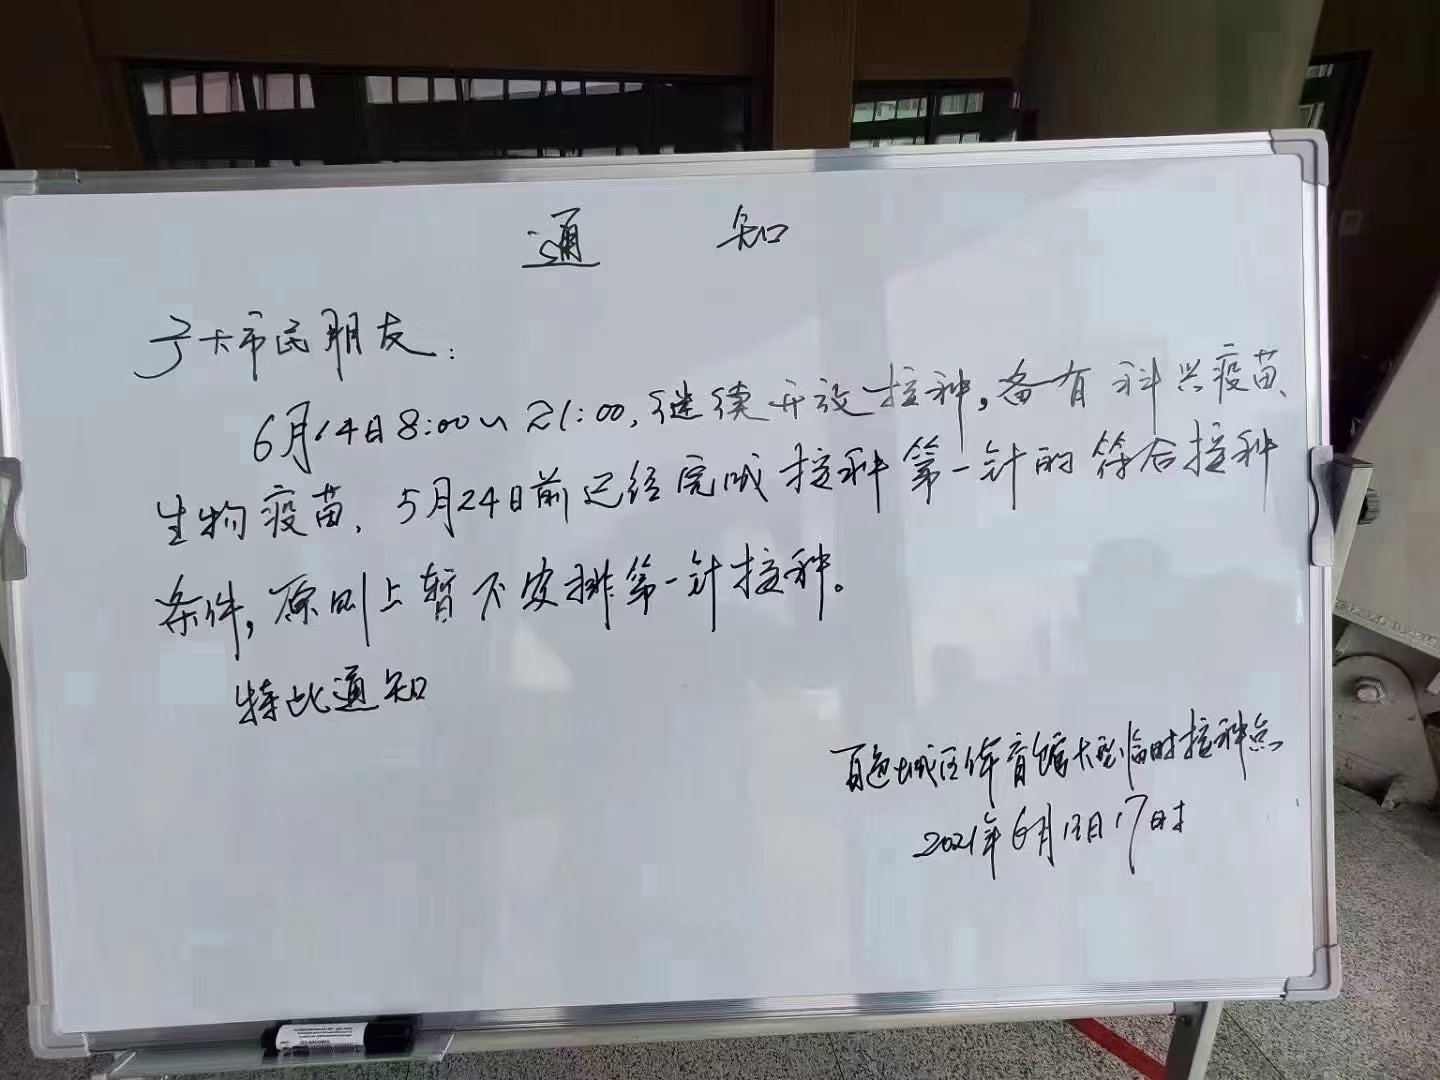 通 知
广大市民朋友:
6月14日8:00~21:00,继续开放接种,备有科兴疫苗、
生物疫苗,5月24日前已经完成接种第一针的符合接种
条件,原则上暂不安排第一针接种。
特此通知
百色城区体育馆大型临时接种点
2021年6月13日17时